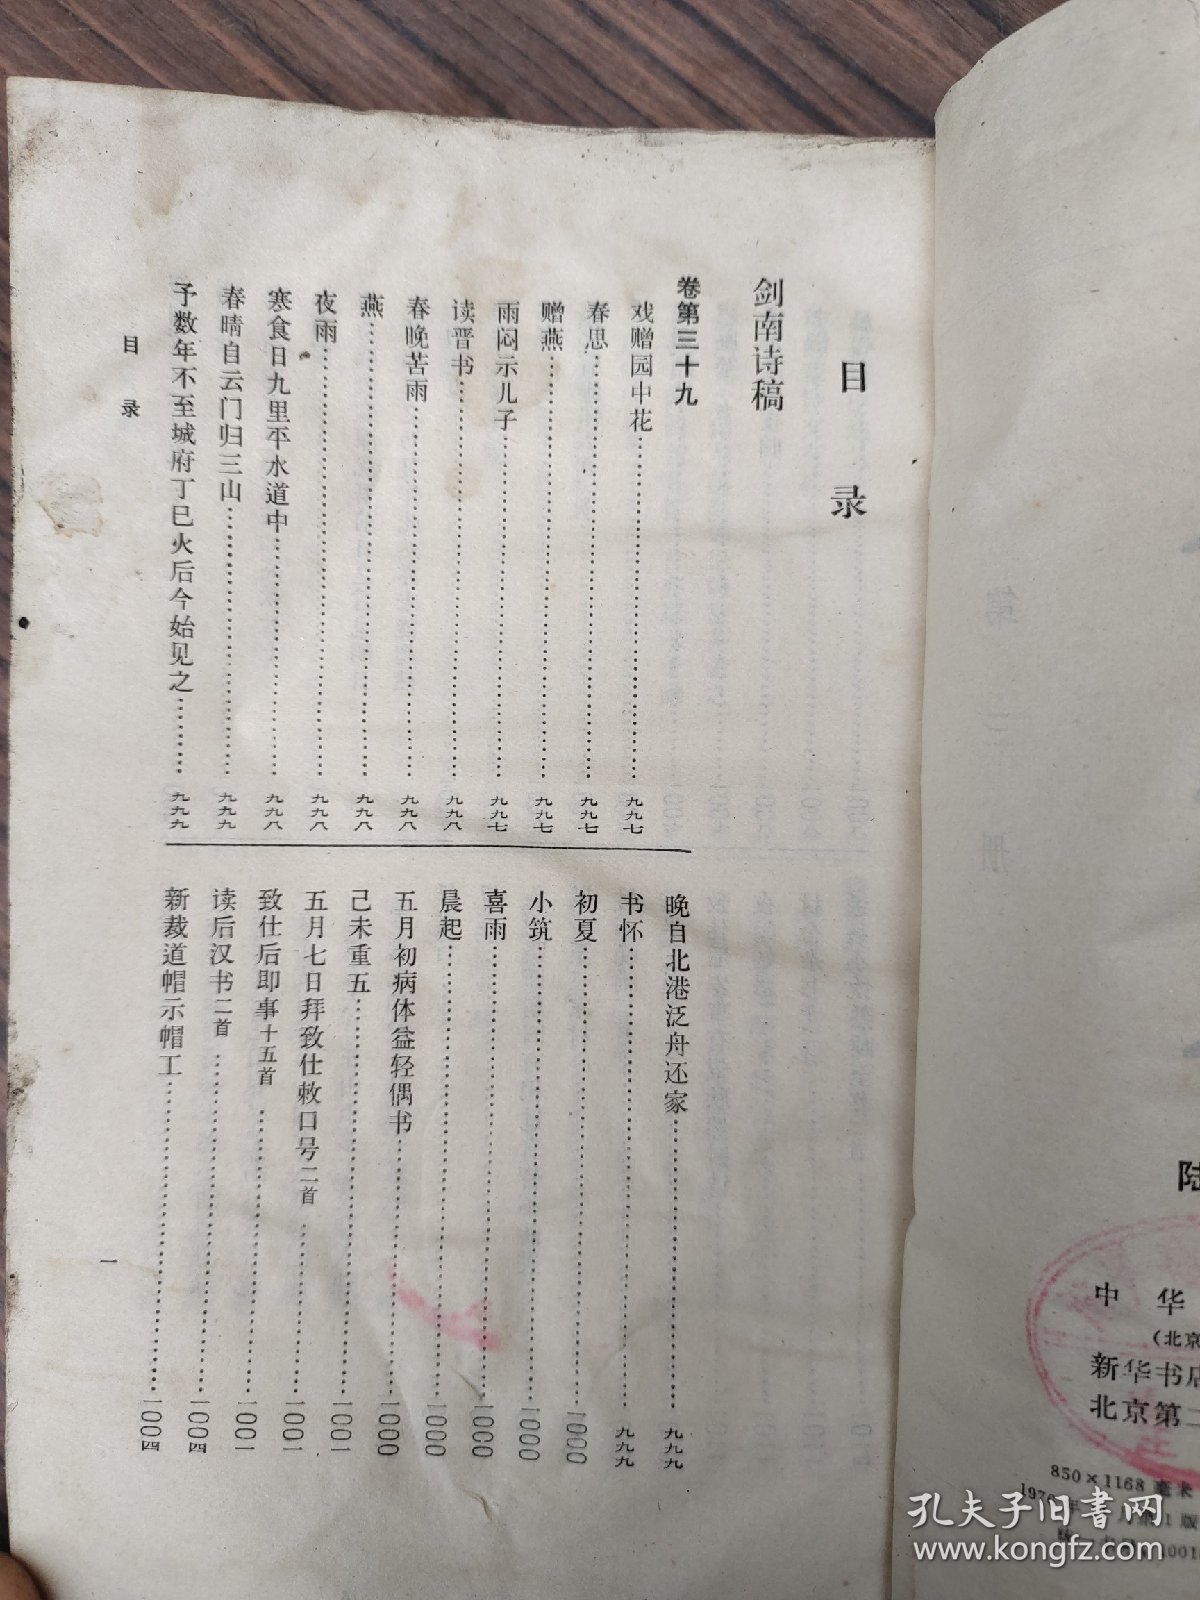 目录
剑南诗稿
卷第三十九
戏赠园中花……九九七
春思……九九七
赠燕……九九七
雨闷示儿子……九九七
读晋书……九九八
春晚苦雨……九九八
燕……九九八
夜雨……九九八
寒食日九里平水道中……九九八
春晴自云门归三山……九九九
予数年不至城府丁巳火后今始见之……九九九
晚自北港泛舟还家……九九九
书怀……九九九
初夏……一〇〇〇
小筑……一〇〇〇
喜雨……一〇〇〇
晨起……一〇〇〇
五月初病体益轻偶书……一〇〇〇
己未重五……一〇〇一
五月七日拜致仕敕口号二首……一〇〇一
致仕后即事十五首……一〇〇一
读后汉书二首……一〇〇四
新裁道帽示帽工……一〇〇四
目录
一
中华
（北京
新华书店
北京第二
850×1168毫米
孔夫子旧书网
www.kongfz.com